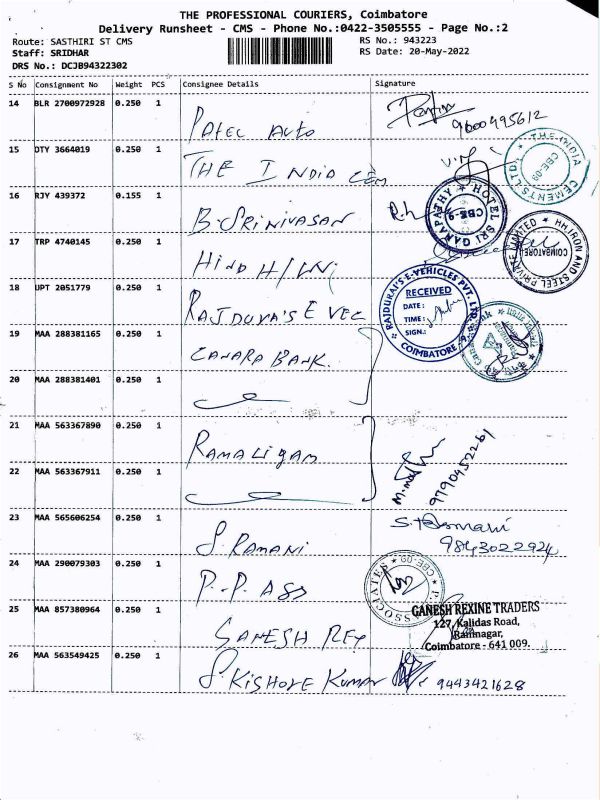 THE PROFESSIONAL COURIERS, Coimbatore
Delivery Runsheet - CMS - Phone No.:0422-3505555 - Page No.:2
Route: SASTHIRI ST CMS
RS No.: 943223
Staff: SRIDHAR
RS Date: 20-May-2022
DRS No.: DCJB94322302
S No Consignment No Weight PCS Consignee Details Signature
14 BLR 2700972928 0.250 1
Patel Auto
9600995612
15 DTY 3664019 0.250 1
THE India Cem
THE INDIA CEMENTS LTD. CBE-09
16 RJY 439372 0.155 1
B. Srinivasan
HOTEL SRI GANAPATHY CBE-9
17 TRP 4740145 0.250 1
Hind H/W
HH IRON AND STEEL PRIVATE LIMITED COIMBATORE
18 UPT 2051779 0.250 1
RAJDURA'S E VEC
RAJDURAI'S E-VEHICLES PVT. LTD. COIMBATORE
RECEIVED
DATE:
TIME:
SIGN.:
19 MAA 288381165 0.250 1
CANARA BANK.
Canara Bank
20 MAA 288381401 0.250 1
21 MAA 563367890 0.250 1
Ramaligam
22 MAA 563367911 0.250 1
9790452261
23 MAA 565606254 0.250 1
S. Ramani
9843022924
24 MAA 290079303 0.250 1
P.P. Ass
P. ASSOCIATES CBE-09
25 MAA 857380964 0.250 1
GANESH REX
GANESH REXINE TRADERS
127, Kalidas Road,
Ramnagar,
Coimbatore - 641 009.
26 MAA 563549425 0.250 1
S. Kishore Kumar
9443421628